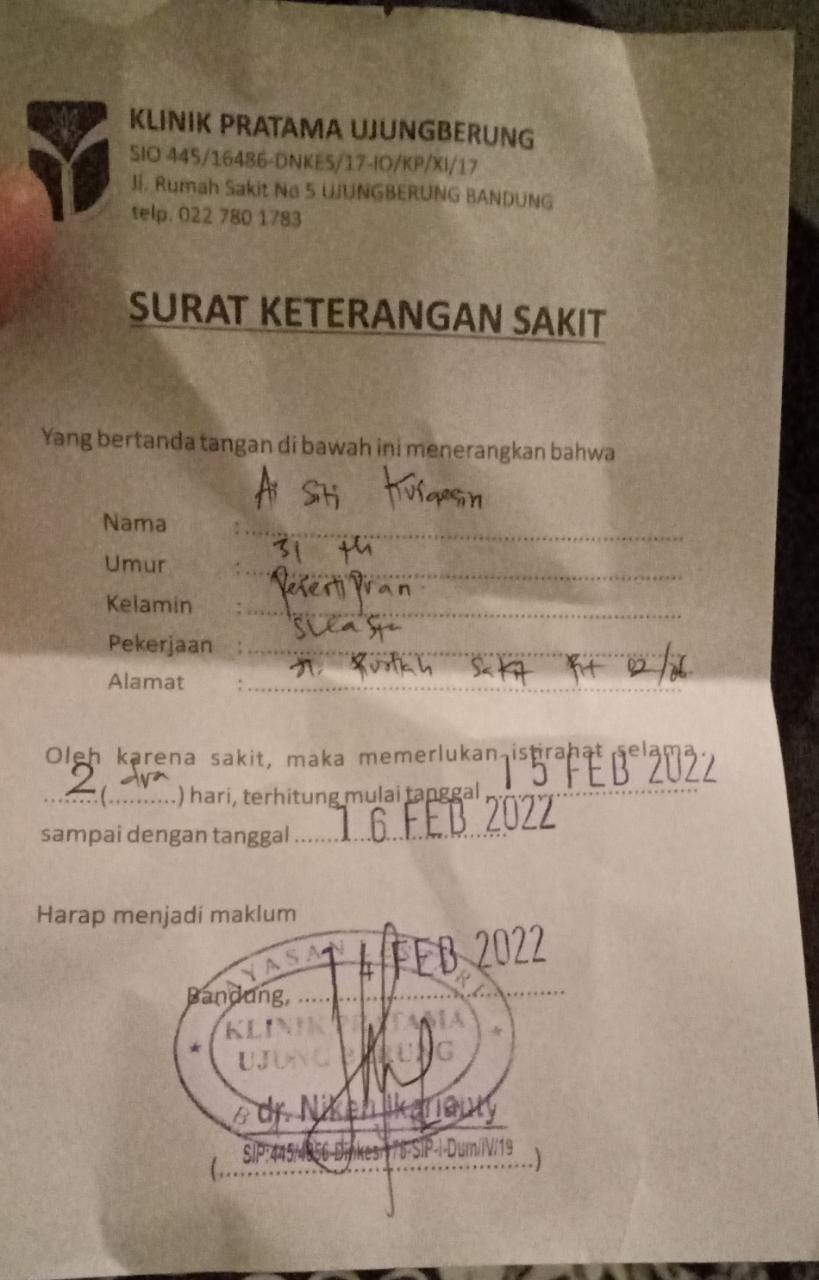 KLINIK PRATAMA UJUNGBERUNG
SIO 445/16486-DNKES/17-IO/KP/XI/17
Jl. Rumah Sakit No 5 UJUNGBERUNG BANDUNG
telp. 022 780 1783
SURAT KETERANGAN SAKIT
Yang bertanda tangan di bawah ini menerangkan bahwa
Nama : Ai Siti
Umur : 31 th
Kelamin :
Pekerjaan :
Alamat : Jl. Sakit Rt 02/06
Oleh karena sakit, maka memerlukan istirahat selama
2 (dua) hari, terhitung mulai tanggal 15 FEB 2022
sampai dengan tanggal 16 FEB 2022
Harap menjadi maklum
Bandung, 14 FEB 2022
YAYASAN
KLINIK PRATAMA
UJUNG BERUNG
dr. Niken